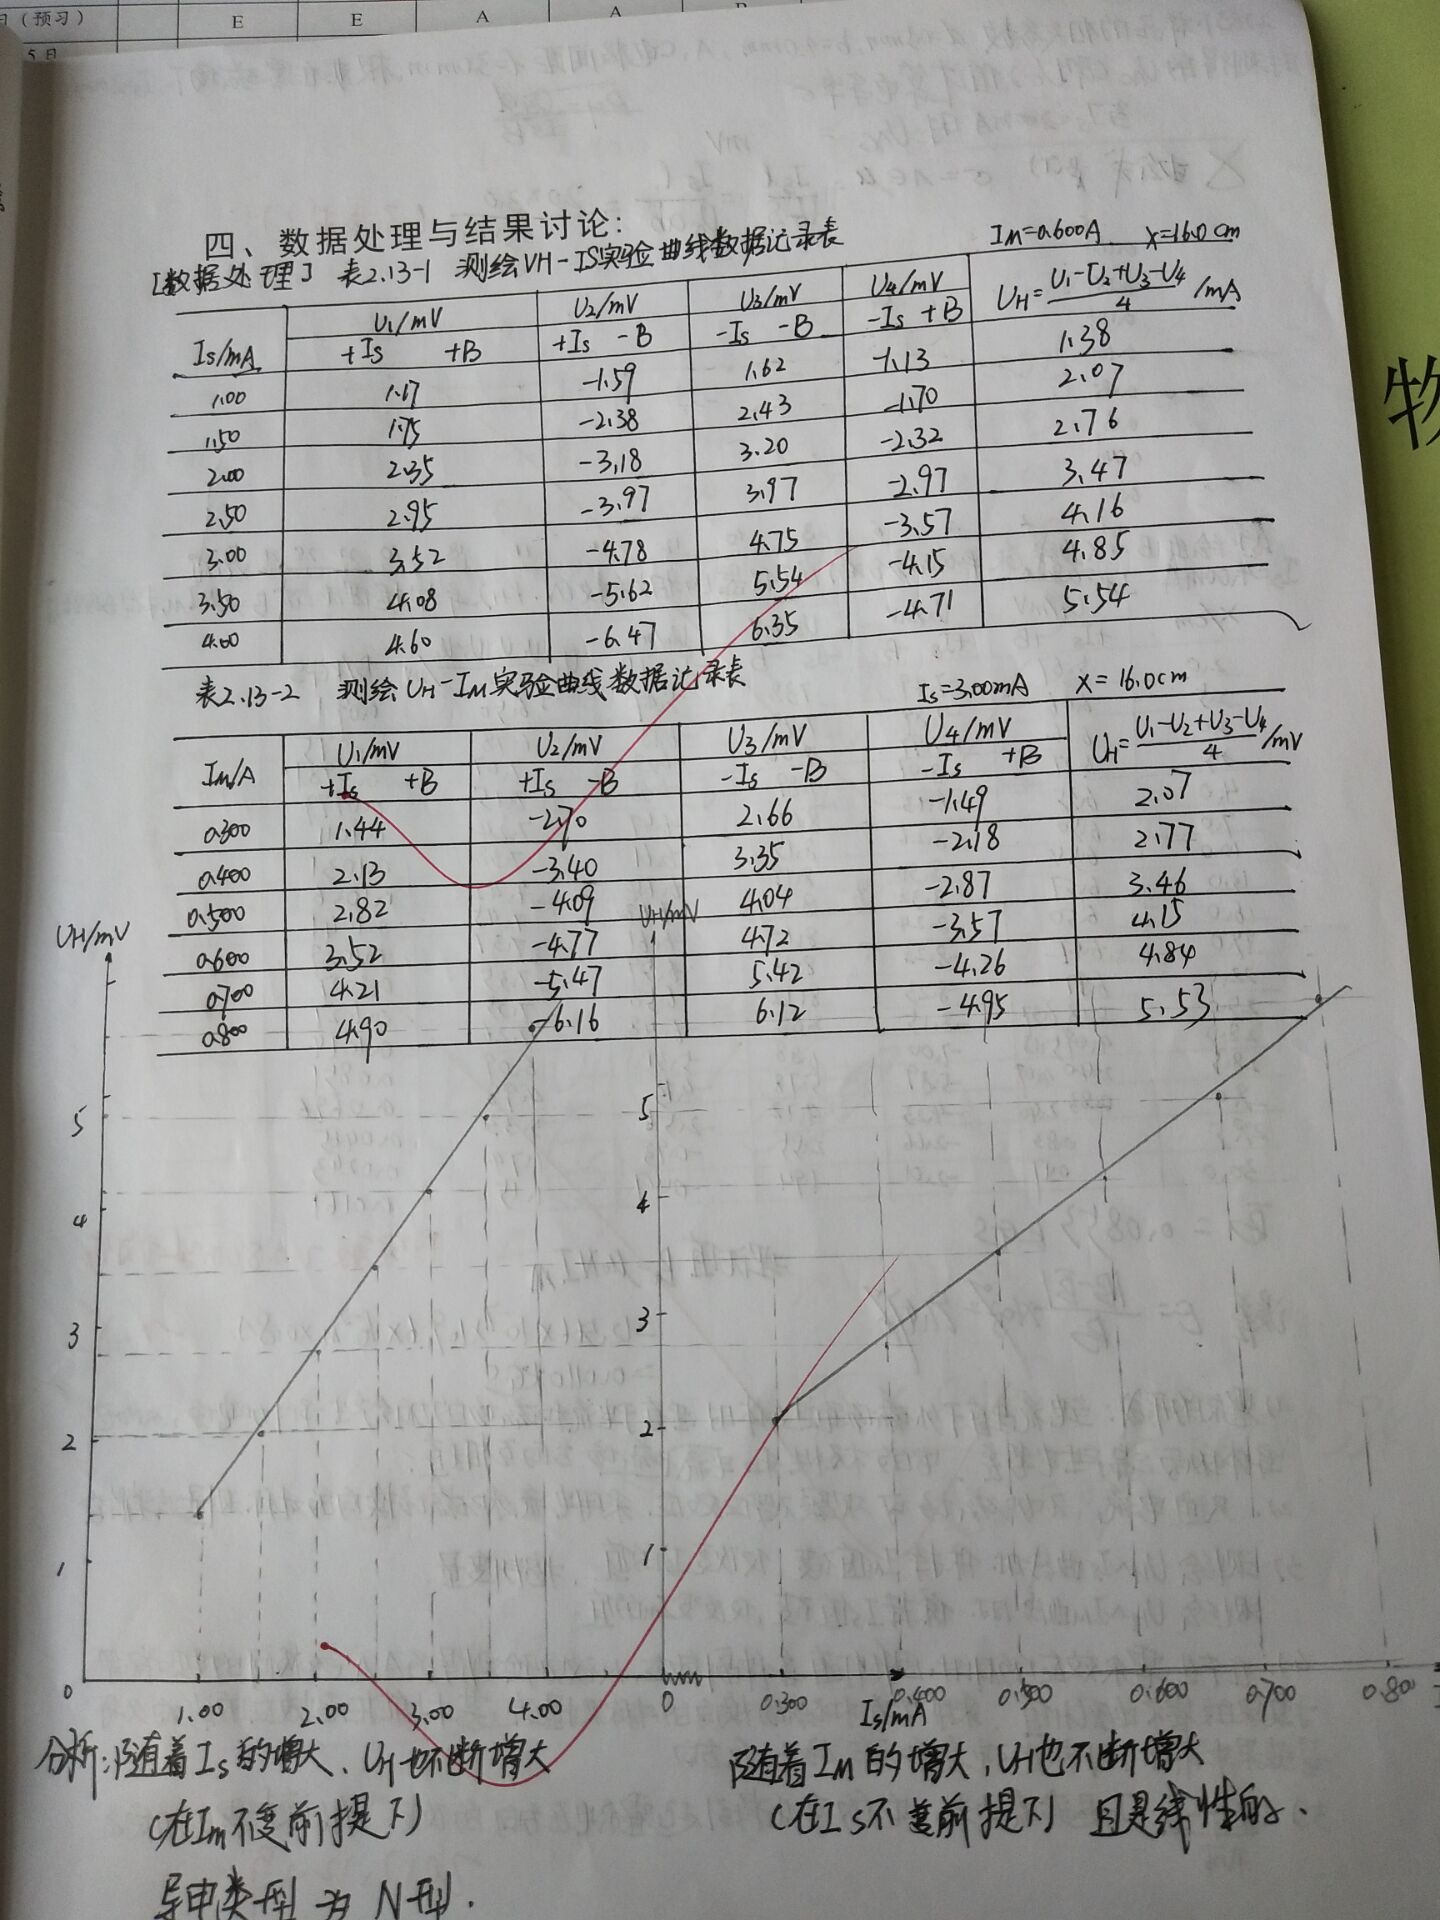 (预习)
E E A A
5日
四、数据处理与结果讨论:
[数据处理] 表2.13-1 测绘VH-IS实验曲线数据记录表 IM=0.600A X=16.0cm
Is/mA U1/mV U2/mV U3/mV U4/mV UH=(U1-U2+U3-U4)/4 /mA
+Is +B +Is -B -Is -B -Is +B
1.00 1.17 -1.59 1.62 -1.13 1.38
1.50 1.75 -2.38 2.43 -1.70 2.07
2.00 2.35 -3.18 3.20 -2.32 2.76
2.50 2.95 -3.97 3.97 -2.97 3.47
3.00 3.52 -4.78 4.75 -3.57 4.16
3.50 4.08 -5.62 5.54 -4.15 4.85
4.00 4.60 -6.47 6.35 -4.71 5.54
表2.13-2 测绘UH-IM实验曲线数据记录表 Is=3.00mA X=16.0cm
Im/A U1/mV U2/mV U3/mV U4/mV UH=(U1-U2+U3-U4)/4 /mV
+Is +B +Is -B -Is -B -Is +B
0.300 1.44 -2.70 2.66 -1.49 2.07
0.400 2.13 -3.40 3.35 -2.18 2.77
0.500 2.82 -4.09 4.04 -2.87 3.46
0.600 3.52 -4.77 4.72 -3.57 4.15
0.700 4.21 -5.47 5.42 -4.26 4.84
0.800 4.90 -6.16 6.12 -4.95 5.53
UH/mV
5
4
3
2
1
0 1.00 2.00 3.00 4.00 Is/mA
UH/mV
5
4
3
2
1
0 0.300 0.400 0.500 0.600 0.700 0.800
分析:随着Is的增大、UH也不断增大
(在Im不变前提下)
导电类型为N型.
随着Im的增大,UH也不断增大
(在Is不变前提下) 且是线性的.
物